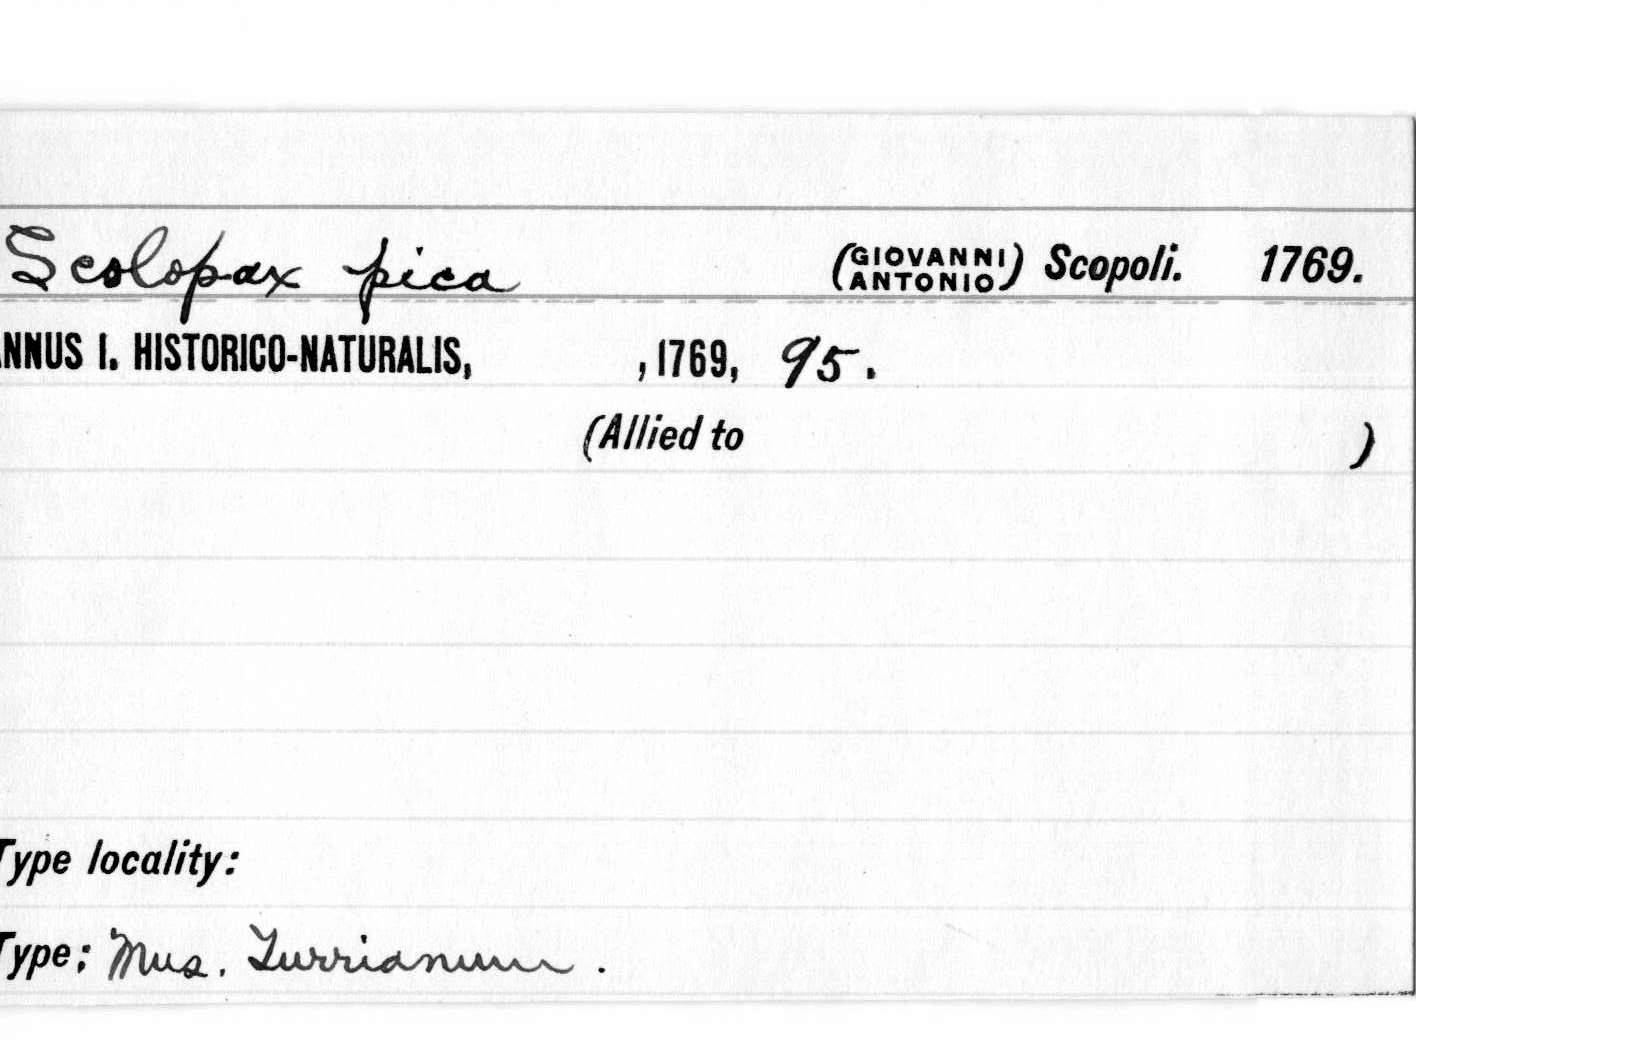 Scolopax pica (GIOVANNI ANTONIO) Scopoli. 1769.
ANNUS I. HISTORICO-NATURALIS, , 1769, 95.
(Allied to )
Type locality:
Type: Mus. Turrianum.